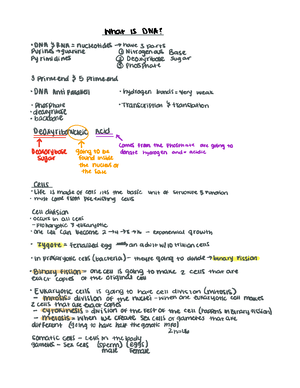 What is DNA?
• DNA & RNA = nucleotides → have 3 parts
Purines → guanine ① Nitrogenous Base
Pyrimidines ② Deoxyribose Sugar
③ Phosphate
3 Prime end & 5 Prime end
• DNA Anti Parallel • hydrogen bonds = very weak
• Phosphate • Transcription & translation
• deoxyribose
• backbone
Deoxyribonucleic Acid
Deoxyribose Sugar
going to be found inside the nucleus of the cell
comes from the phosphate are going to donate hydrogen and = acidic
Cells
• Life is made of cells its the basic unit of structure & function
• must come from pre-existing cells
Cell division
• occurs in all cells
- prokaryotic & eukaryotic
• one cell can become 2→4→8→16 - exponential growth
• zygote = fertilized egg → an adult w/ trillion cells
• In prokaryotic cells (bacteria) - they're going to divide → binary fission
• Binary fission = one cell is going to make 2 cells that are
exact copies of the original cell
• Eukaryotic cells is going to have cell division (mitosis)
- mitosis: division of the nuclei - when one eukaryotic cell makes
2 cells that are exact copies
- cytokinesis = division of the rest of the cell (happens in binary fission)
- meiosis = when we create sex cells or gametes that are
different (going to have half the genetic info)
2n→n
Somatic cells - cells in the body
gametes - sex cells (sperm) (eggs)
male female